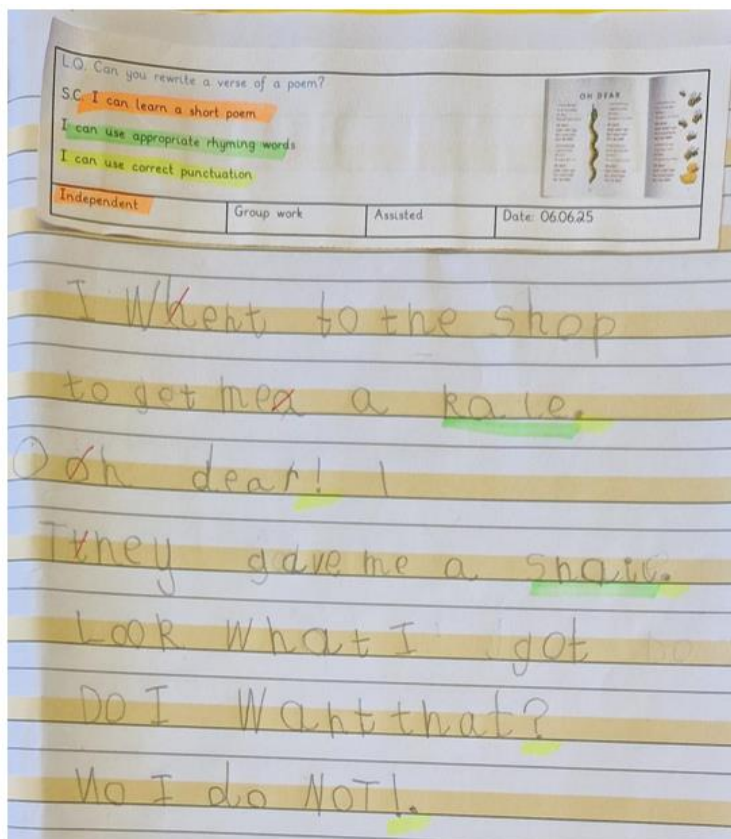 L.Q. Can you rewrite a verse of a poem?
S.C. I can learn a short poem
I can use appropriate rhyming words
I can use correct punctuation
Independent Group work Assisted Date: 06.06.25
OH DEAR
I Whent to the shop
to get mea a kale.
Oh dear!
They gave me a snail.
Look What I got
DO I Want that?
No I do NOT!.